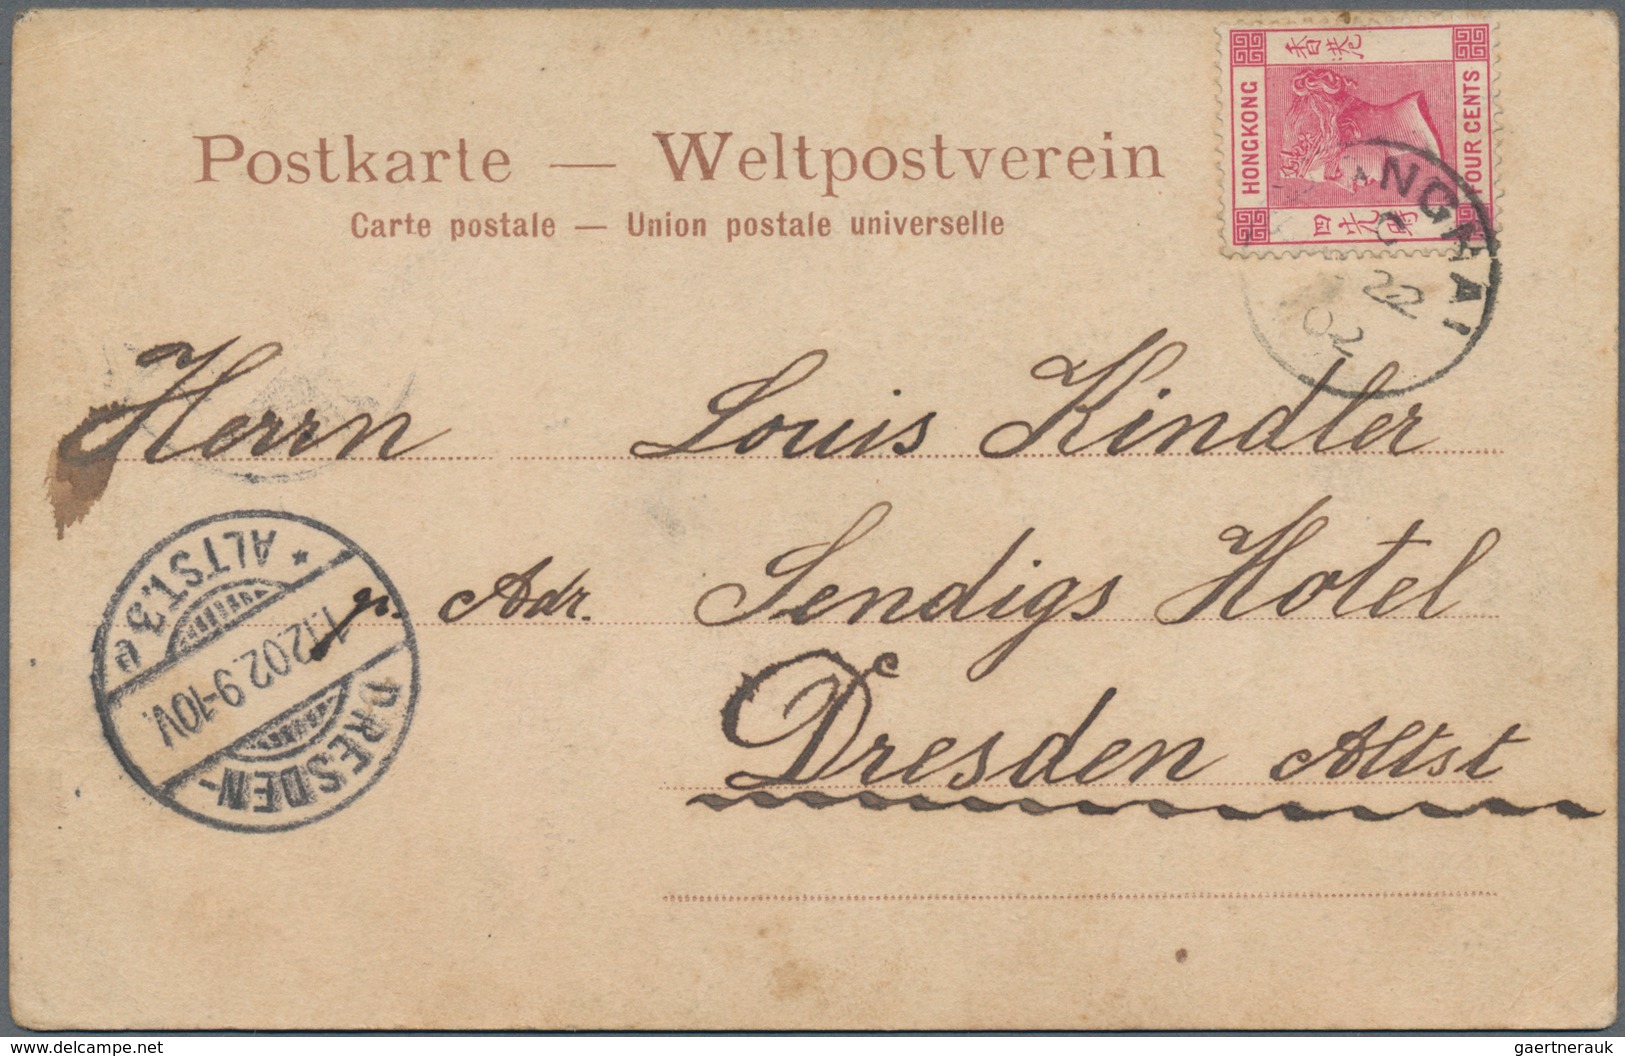 Postkarte — Weltpostverein
Carte postale — Union postale universelle
香港
HONGKONG
FOUR CENTS
SHANGHAI
22
02
Herrn Louis Kindler
p. Adr. Sendigs Hotel
Dresden Altst
DRESDEN-
ALTST. 3 e
1.12.02.9-10V.
www.delcampe.net
gaertnerauk